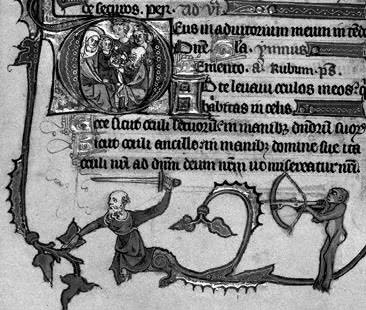 de sequns. per. ad vi.
Eus in adiutorium meum in
Dne. Gla. ymnus
Memento. a. Rubum. ps.
Ad te levavi oculos meos. q
habitas in celis.
Ecce sicut oculi servorum in manibus dominorum suorum
Sicut oculi ancille in manibus domine sue ita
oculi nri ad dnm deum nrm donec misereatur nri.